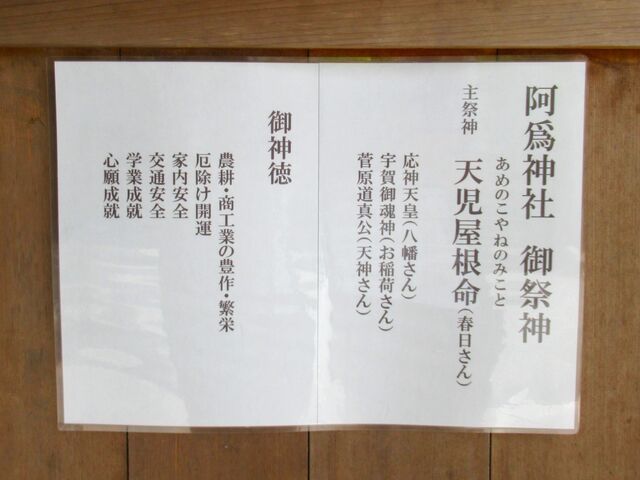 阿爲神社　御祭神
あめのこやねのみこと
主祭神　天児屋根命(春日さん)
応神天皇(八幡さん)
宇賀御魂神(お稲荷さん)
菅原道真公(天神さん)
御神徳
農耕・商工業の豊作・繁栄
厄除け開運
家内安全
交通安全
学業成就
心願成就